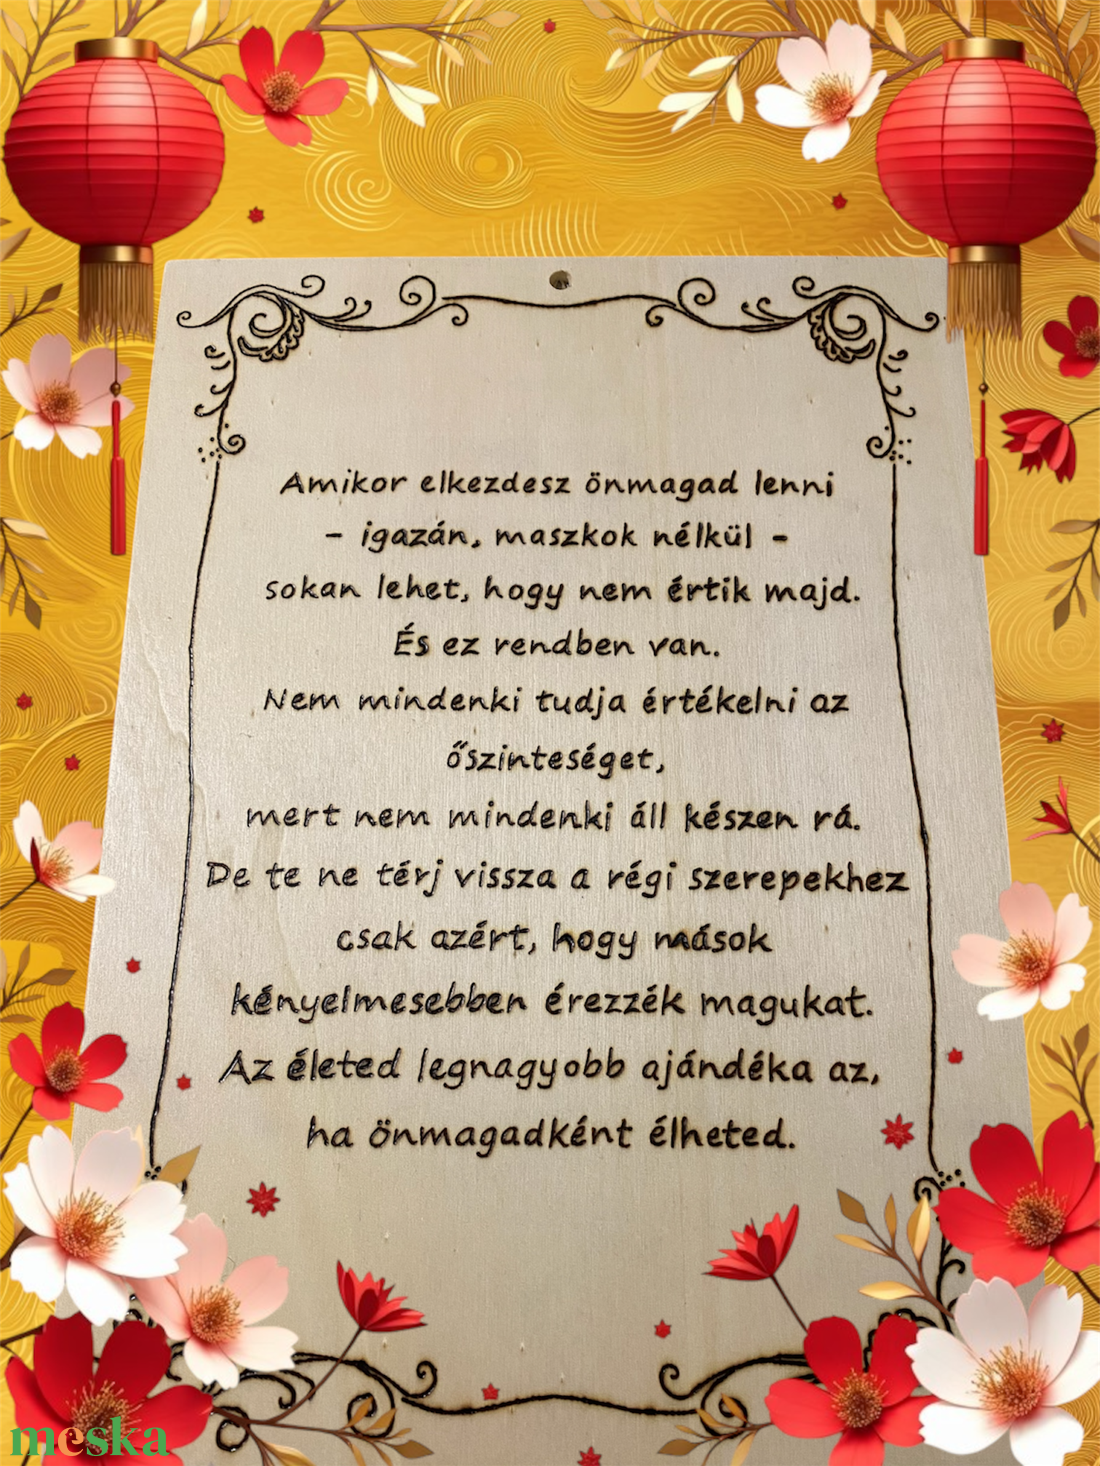 Amikor elkezdesz önmagad lenni
- igazán, maszkok nélkül -
sokan lehet, hogy nem értik majd.
És ez rendben van.
Nem mindenki tudja értékelni az
őszinteséget,
mert nem mindenki áll készen rá.
De te ne térj vissza a régi szerepekhez
csak azért, hogy mások
kényelmesebben érezzék magukat.
Az életed legnagyobb ajándéka az,
ha önmagadként élheted.
meska